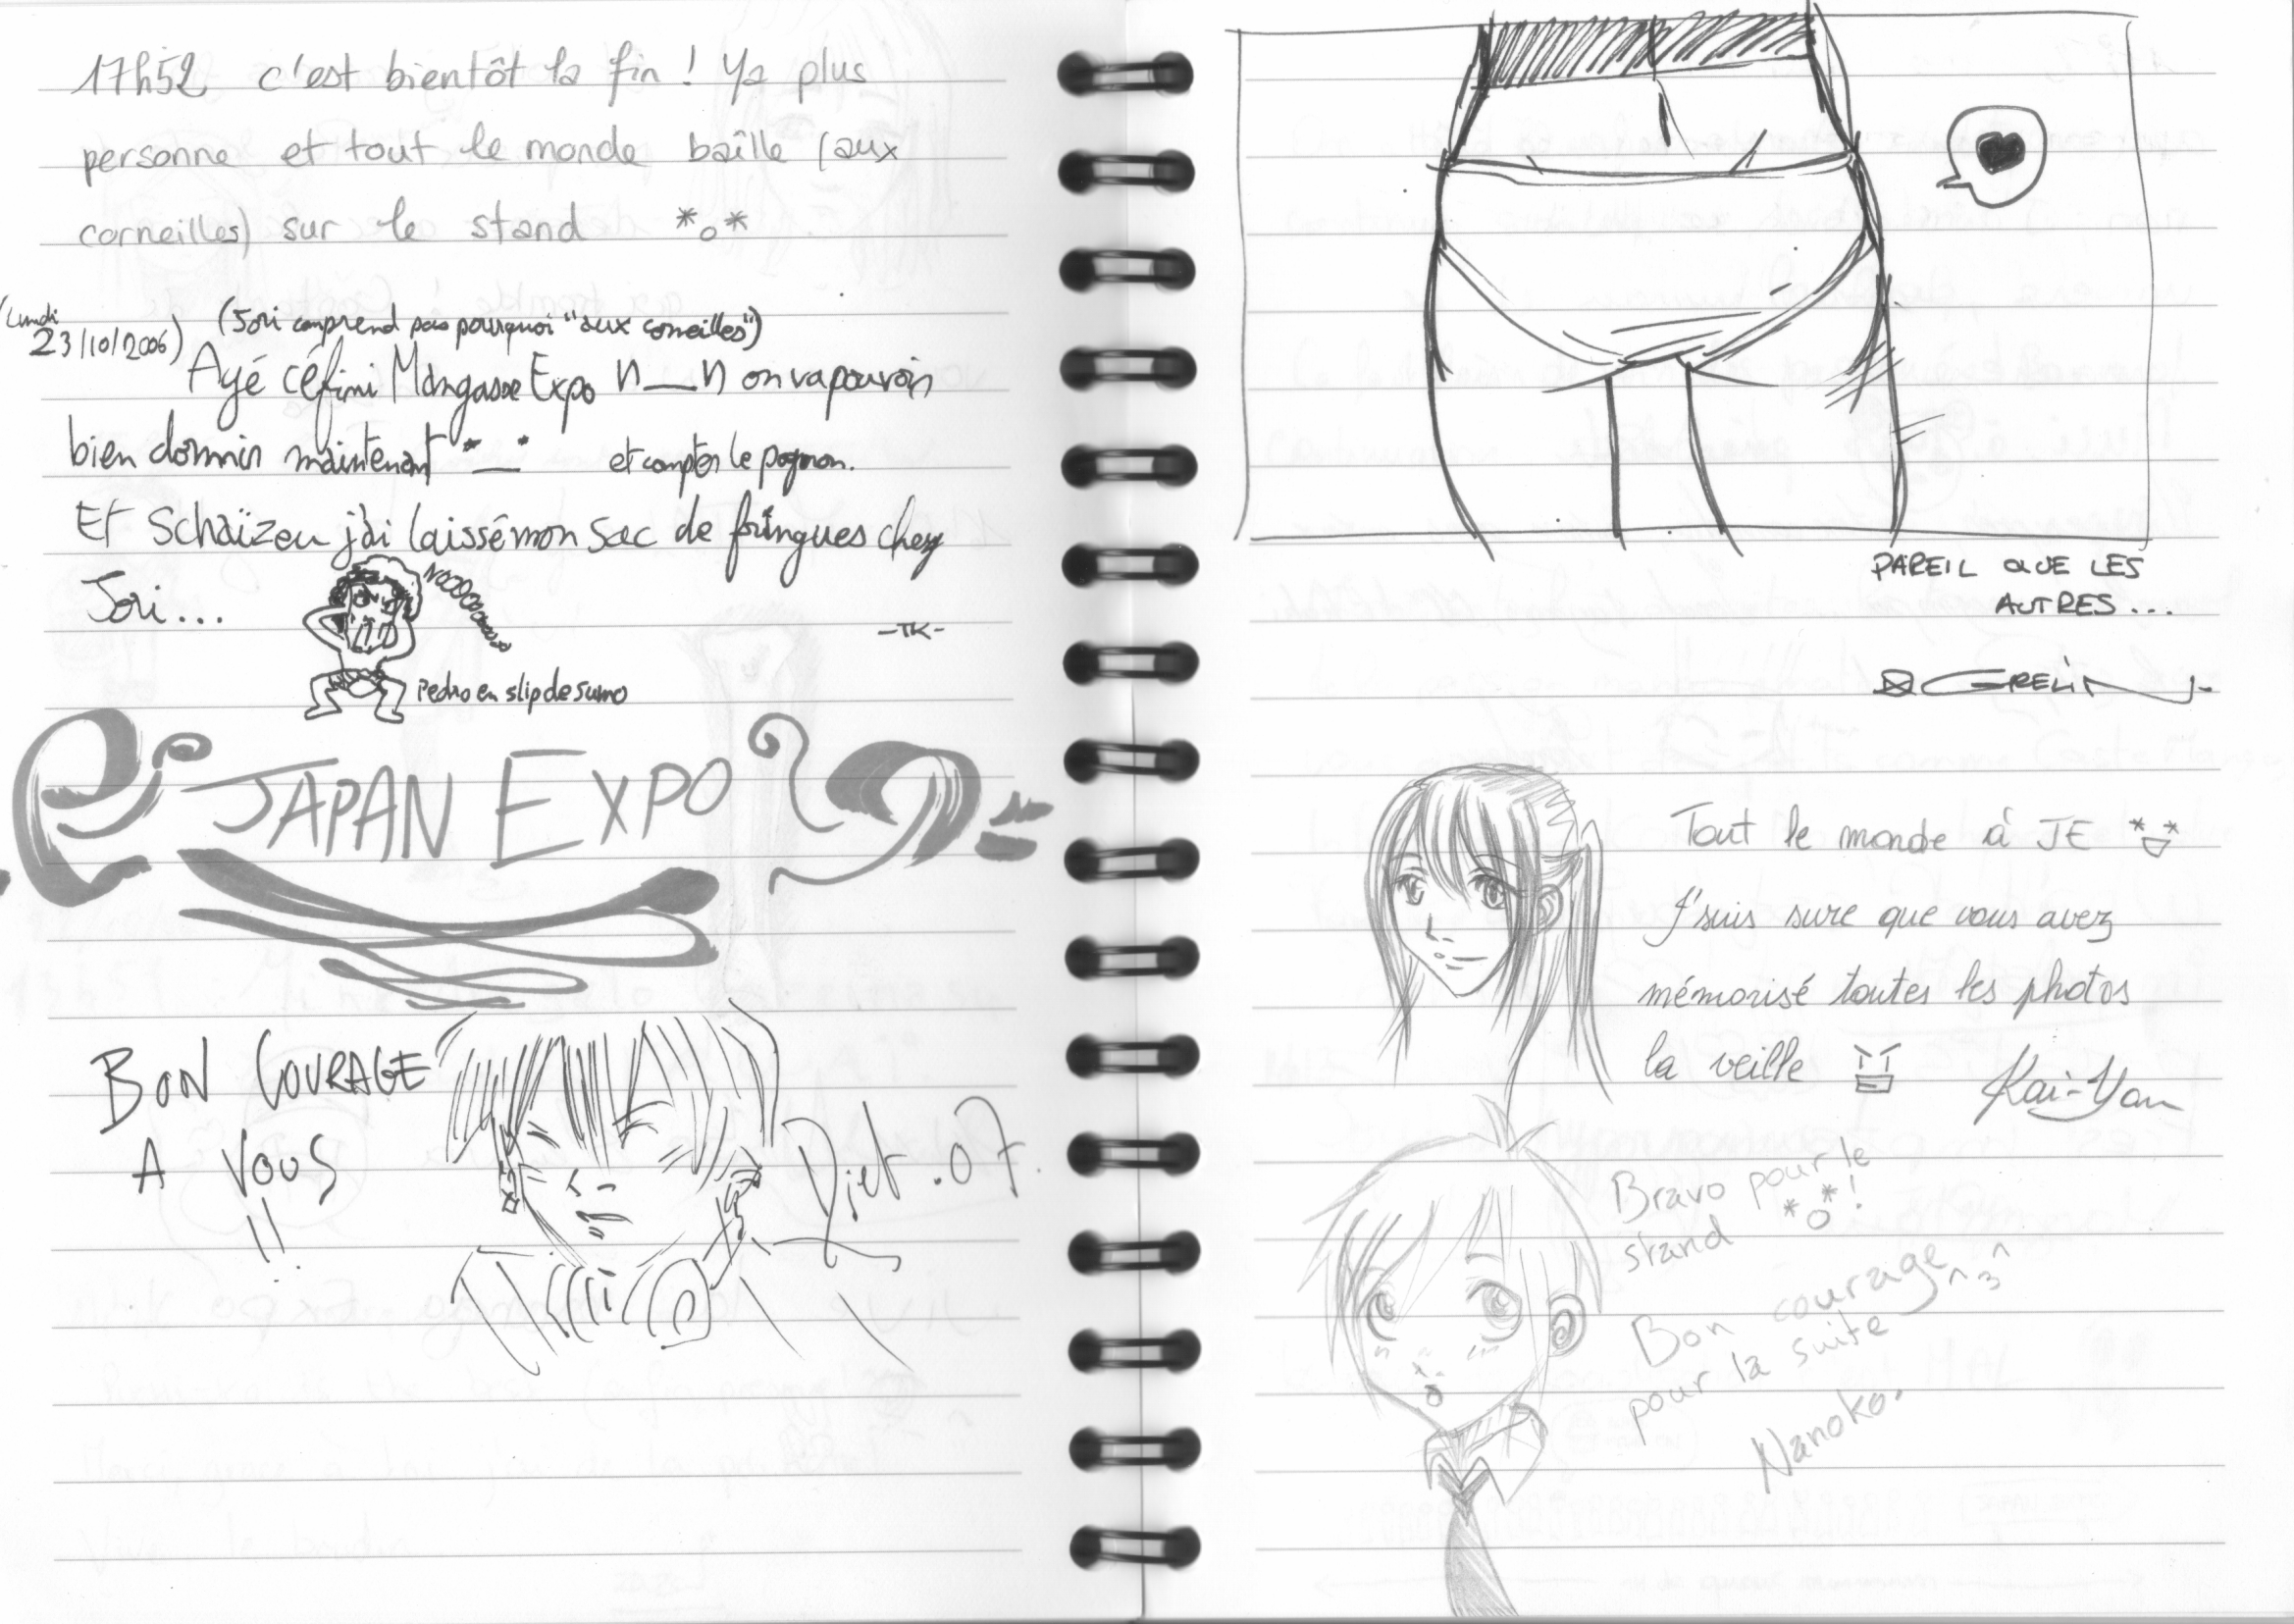 17h52 c'est bientôt la fin ! Ya plus
personne et tout le monde baîlle (aux
corneilles) sur le stand *o*
(Lundi
23/10/2006)
(Jori comprend pas pourquoi "aux corneilles")
Ayé céfini Mangasse Expo n__n on va pouvoir
bien dormir maintenant *__* et compter le pognon.
Et Schaïzeu j'ai laissé mon sac de fringues chez
Jori...
NOOOOOooooo
-TK-
Pedro en slip de sumo
JAPAN EXPO
BON COURAGE
A VOUS
!!
Djet.07.
PAREIL QUE LES
AUTRES...
GRELIN
Tout le monde à JE
J'suis sure que vous avez
mémorisé toutes les photos
la veille
Kai-Yan
Bravo pour le
stand *o*!
Bon courage ^3^
pour la suite
Nanoko.